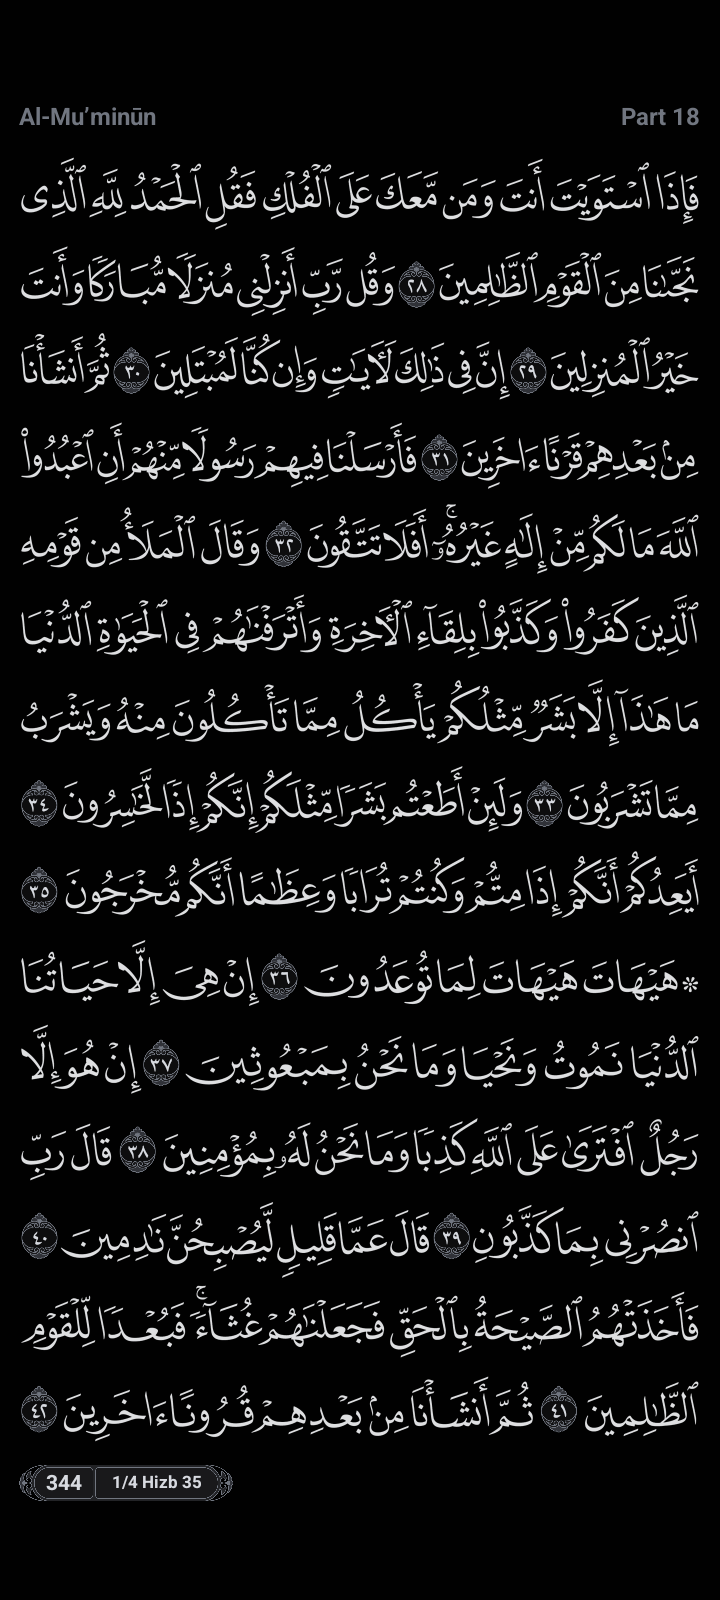 Al-Mu’minūn
Part 18
فَإِذَا ٱسْتَوَيْتَ أَنتَ وَمَن مَّعَكَ عَلَى ٱلْفُلْكِ فَقُلِ ٱلْحَمْدُ لِلَّهِ ٱلَّذِى
نَجَّىٰنَا مِنَ ٱلْقَوْمِ ٱلظَّٰلِمِينَ ٢٨ وَقُل رَّبِّ أَنزِلْنِى مُنزَلًا مُّبَارَكًا وَأَنتَ
خَيْرُ ٱلْمُنزِلِينَ ٢٩ إِنَّ فِى ذَٰلِكَ لَءَايَٰتٍ وَإِن كُنَّا لَمُبْتَلِينَ ٣٠ ثُمَّ أَنشَأْنَا
مِنۢ بَعْدِهِمْ قَرْنًا ءَاخَرِينَ ٣١ فَأَرْسَلْنَا فِيهِمْ رَسُولًا مِّنْهُمْ أَنِ ٱعْبُدُوا۟
ٱللَّهَ مَا لَكُم مِّنْ إِلَٰهٍ غَيْرُهُۥٓ ۚ أَفَلَا تَتَّقُونَ ٣٢ وَقَالَ ٱلْمَلَأُ مِن قَوْمِهِ
ٱلَّذِينَ كَفَرُوا۟ وَكَذَّبُوا۟ بِلِقَآءِ ٱلْءَاخِرَةِ وَأَتْرَفْنَٰهُمْ فِى ٱلْحَيَوٰةِ ٱلدُّنْيَا
مَا هَٰذَآ إِلَّا بَشَرٌ مِّثْلُكُمْ يَأْكُلُ مِمَّا تَأْكُلُونَ مِنْهُ وَيَشْرَبُ
مِمَّا تَشْرَبُونَ ٣٣ وَلَئِنْ أَطَعْتُم بَشَرًا مِّثْلَكُمْ إِنَّكُمْ إِذًا لَّخَٰسِرُونَ ٣٤
أَيَعِدُكُمْ أَنَّكُمْ إِذَا مِتُّمْ وَكُنتُمْ تُرَابًا وَعِظَٰمًا أَنَّكُم مُّخْرَجُونَ ٣٥
۞ هَيْهَاتَ هَيْهَاتَ لِمَا تُوعَدُونَ ٣٦ إِنْ هِىَ إِلَّا حَيَاتُنَا
ٱلدُّنْيَا نَمُوتُ وَنَحْيَا وَمَا نَحْنُ بِمَبْعُوثِينَ ٣٧ إِنْ هُوَ إِلَّا
رَجُلٌ ٱفْتَرَىٰ عَلَى ٱللَّهِ كَذِبًا وَمَا نَحْنُ لَهُۥ بِمُؤْمِنِينَ ٣٨ قَالَ رَبِّ
ٱنصُرْنِى بِمَا كَذَّبُونِ ٣٩ قَالَ عَمَّا قَلِيلٍ لَّيُصْبِحُنَّ نَٰدِمِينَ ٤٠
فَأَخَذَتْهُمُ ٱلصَّيْحَةُ بِٱلْحَقِّ فَجَعَلْنَٰهُمْ غُثَآءً ۚ فَبُعْدًا لِّلْقَوْمِ
ٱلظَّٰلِمِينَ ٤١ ثُمَّ أَنشَأْنَا مِنۢ بَعْدِهِمْ قُرُونًا ءَاخَرِينَ ٤٢
344
1/4 Hizb 35